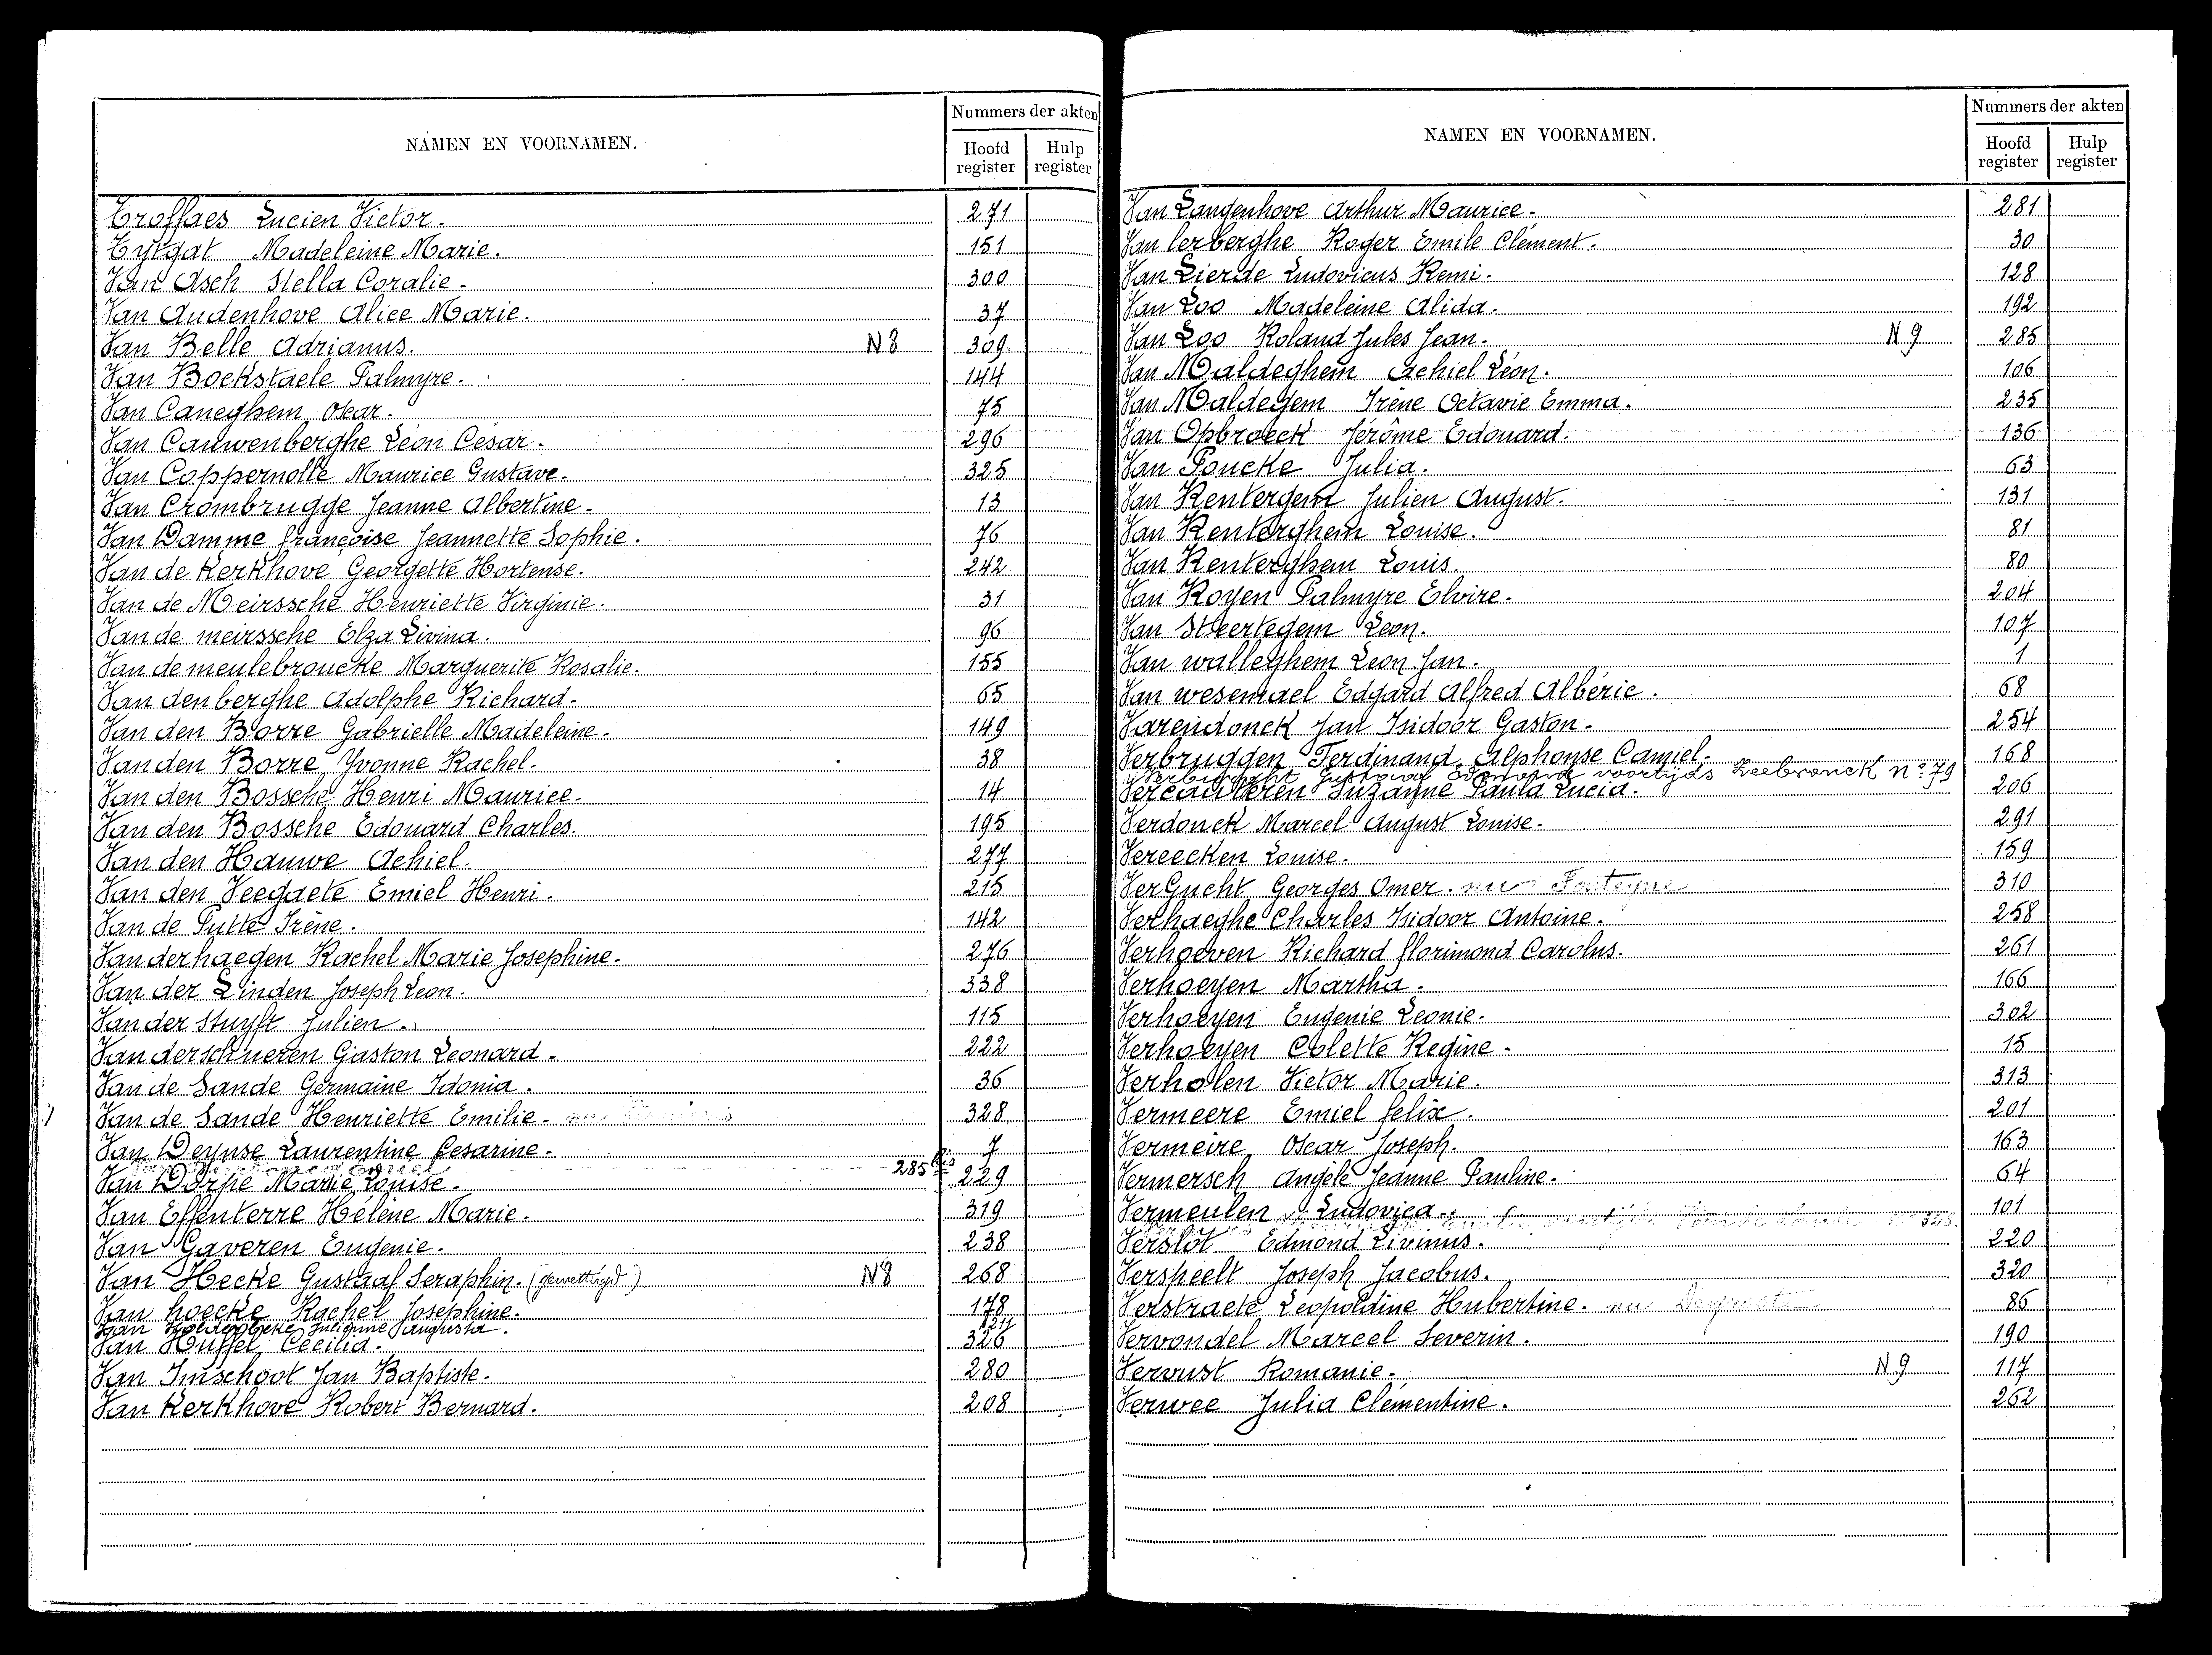 NAMEN EN VOORNAMEN.
Nummers der akten
Hoofd register
Hulp register
Troffaes Lucien Victor. 271
Tytgat Madeleine Marie. 151
Van Asch Stella Coralie. 300
Van Audenhove Alice Marie. 37
Van Belle Adrianus. N8 309
Van Bockstaele Palmyre. 144
Van Caneghem Oscar. 75
Van Cauwenberghe Léon César. 296
Van Coppernolle Maurice Gustave. 325
Van Crombrugge Jeanne Albertine. 13
Van Damme Françoise Jeannette Sophie. 76
Van de Kerkhove Georgette Hortense. 242
Van de Meirssche Henriette Virginie. 31
Van de meirssche Elza Livina. 96
Van de meulebroucke Marguerite Rosalie. 155
Van den berghe Adolphe Richard. 65
Van den Borre Gabrielle Madeleine. 149
Van den Borre Yvonne Rachel. 38
Van den Bossche Henri Maurice. 14
Van den Bossche Edouard Charles. 195
Van den Hauwe Achiel. 277
Van den Veegaete Emiel Henri. 215
Van de Putte Irène. 142
Van der haegen Rachel Marie Josephine. 276
Van der Linden Joseph Leon. 338
Van der Stuyft Julien. 115
Van der schueren Gaston Leonard. 222
Van de Sande Germaine Idonia. 36
Van de Sande Henriette Emilie. nu 328
Van Deynse Laurentine Cesarine. 7
285 bis
Van Dorpe Marie Louise. 229
Van Effenterre Hélène Marie. 319
Van Gaveren Eugenie. 238
Van Hecke Gustaaf Seraphin. (gewettigd) N8 268
Van hoecke Rachel Josephine. 178
Van Holderbeke Julienne Augusta.
Van Huffel Cecilia. 326
Van Imschoot Jan Baptiste. 280
Van Kerkhove Robert Bernard. 208
NAMEN EN VOORNAMEN.
Nummers der akten
Hoofd register
Hulp register
Van Langenhove Arthur Maurice. 281
Van lerberghe Roger Emile Clément. 30
Van Lierde Ludovicus Remi. 128
Van Loo Madeleine Alida. 192
Van Loo Roland Jules Jean. N9 285
Van Maldeghem Achiel Léon. 106
Van Maldegem Irène Octavie Emma. 235
Van Opbroeck Jérôme Edouard. 136
Van Poucke Julia. 63
Van Rentergem Julien August. 131
Van Renterghem Louise. 81
Van Renterghem Louis. 80
Van Royen Palmyre Elvire. 204
Van Steertegem Leon. 107
Van walleghem Leon Jan. 1
Van wesemael Edgard Alfred Albéric. 68
Varendonck Jan Isidoor Gaston. 254
Verbruggen Ferdinand Alphonse Camiel. 168
Verbrugght Gustaaf Edmond voortijds Zeebrouck n° 79
Vercauteren Suzanne Paula Lucia. 206
Verdonck Marcel August Louise. 291
Vereecken Louise. 159
VerGucht Georges Omer. nu Fonteyne 310
Verhaeghe Charles Isidoor Antoine. 258
Verhoeven Richard florimond Carolus. 261
Verhoeyen Martha. 166
Verhoeyen Eugenie Leonie. 302
Verhoeyen Colette Regine. 15
Verholen Victor Marie. 313
Vermeere Emiel felix. 201
Vermeire Oscar Joseph. 163
Vermersch Angèle Jeanne Pauline. 64
Vermeulen Ludovica. 101
Verslot Edmond Livinus. 220
Verspeelt Joseph Jacobus. 320
Verstraete Leopoldine Hubertine. nu 86
Vervondel Marcel Severin. 190
Vervust Romanie. N9 117
Verwee Julia Clémentine. 262